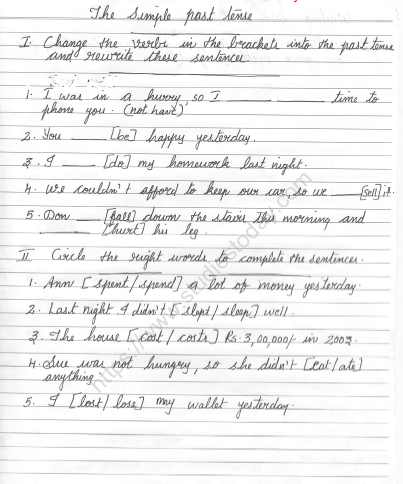 The Simple past tense
I. Change the verbs in the brackets into the past tense
and rewrite these sentences.
1. I was in a hurry, so I ______ ______ time to
phone you. (not have)
2. You ____ [be] happy yesterday.
3. I ____ [do] my homework last night.
4. We couldn't afford to keep our car, so we ____ [sell] it.
5. Don ____ [fall] down the stairs this morning and
______ [hurt] his leg.
II Circle the right words to complete the sentences.
1. Ann [spent/spend] a lot of money yesterday.
2. Last night I didn't [slept/sleep] well.
3. The house [cost/costs] Rs. 3,00,000/- in 2003.
4. Sue was not hungry, so she didn't [eat/ate]
anything
5. I [lost/lose] my wallet yesterday.
https://www.studiestoday.com